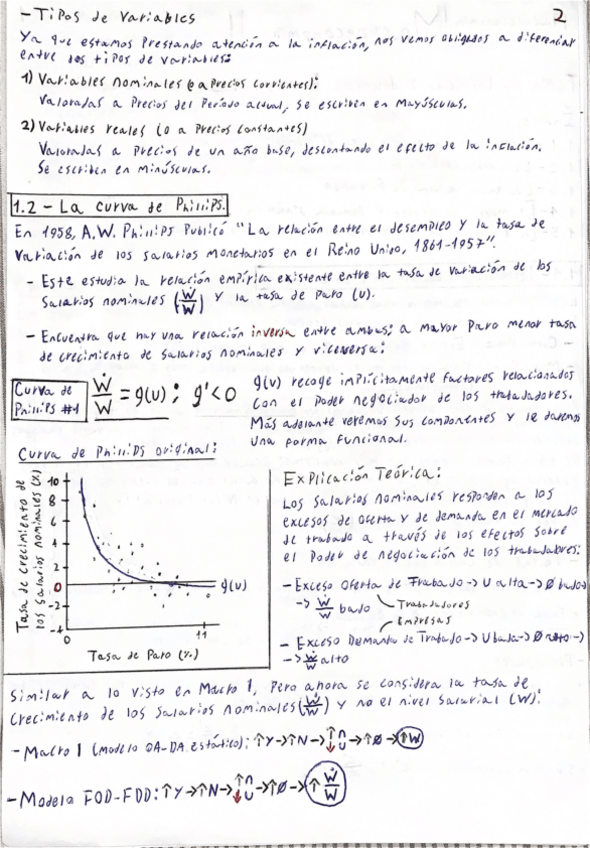 - Tipos de Variables
2
Ya que estamos prestando atención a la inflación, nos vemos obligados a diferenciar
entre dos tipos de variables:
1) Variables nominales (o a precios corrientes):
Valoradas a precios del período actual, se escriben en mayúsculas.
2) Variables reales (o a precios constantes)
Valoradas a precios de un año base, descontando el efecto de la inflación.
Se escriben en minúsculas.
1.2 - La curva de Phillips.
En 1958, A.W. Phillips publicó "La relación entre el desempleo y la tasa de
variación de los salarios monetarios en el Reino Unido, 1861-1957".
- Este estudia la relación empírica existente entre la tasa de variación de los
salarios nominales (Ẇ/W) y la tasa de paro (u).
- Encuentra que hay una relación inversa entre ambas: a mayor paro menor tasa
de crecimiento de salarios nominales y viceversa:
Curva de
Phillips #1
Ẇ/W = g(u); g'<0
g(u) recoge implícitamente factores relacionados
con el poder negociador de los trabajadores.
Más adelante veremos sus componentes y le daremos
una forma funcional.
Curva de Phillips original:
Tasa de crecimiento de
los salarios nominales (%)
10
8
6
4
2
0
-2
-4
0
11
g(u)
Tasa de Paro (%)
Explicación Teórica:
Los salarios nominales responden a los
excesos de oferta y de demanda en el mercado
de trabajo a través de los efectos sobre
el poder de negociación de los trabajadores:
- Exceso Oferta de Trabajo -> u alta -> Ø bajo
-> Ẇ/W bajo
Trabajadores
Empresas
- Exceso Demanda de Trabajo -> u baja -> Ø alto ->
-> Ẇ/W alto
Similar a lo visto en Macro 1, pero ahora se considera la tasa de
crecimiento de los salarios nominales (Ẇ/W) y no el nivel salarial (W):
- Macro 1 (modelo OA-DA estático): ↑Y->↑N->↑n ↓u->↑Ø->↑W
- Modelo FOD-FDD: ↑Y->↑N->↑n ↓u->↑Ø->↑Ẇ/W